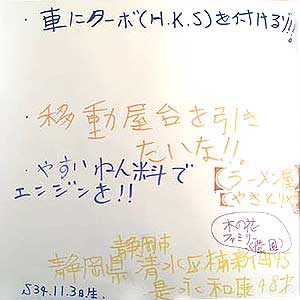 ・車にターボ(H.K.S)を付けるゾ!!
・移動屋台を引き
たいな!!
【ラーメン屋】
【やきとり】
・やすいねん料で
エンジンを!!
木の花
ファミリー
静岡市
静岡県 清水区
是永和康 48才
S34.11.3日生.